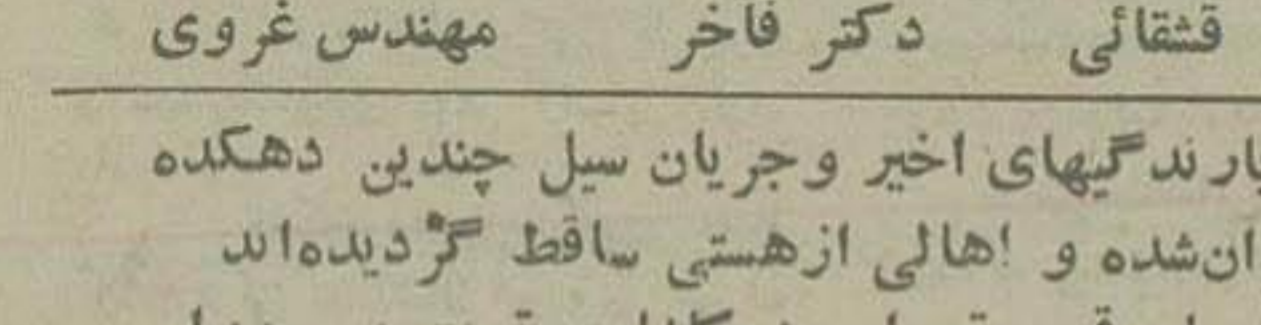 قشقائی دکتر فاخر مهندس غروی
بارندگیهای اخیر و جریان سیل چندین دهکده
ان‌شده و اهالی از هستی ساقط گردیده‌اند